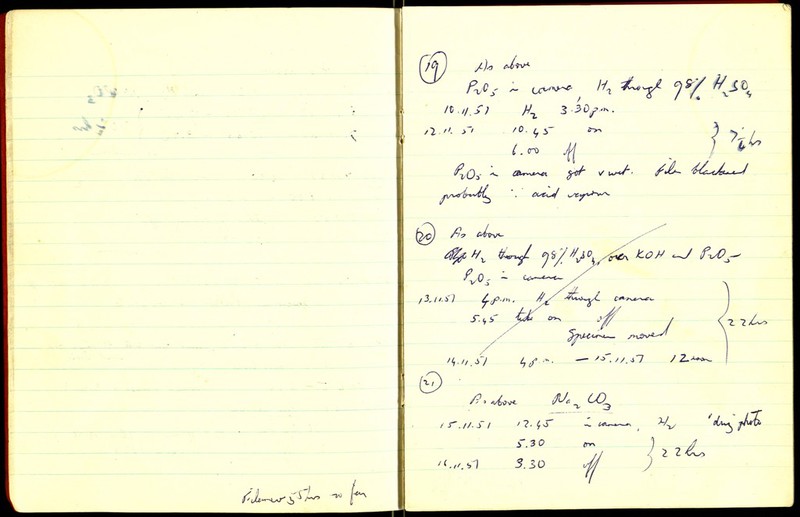 (19) As above
P2O5 in camera, H2 through 98% H2SO4
10.11.51 H2 3.30 p.m.
12.11.51 10.45 on
6.00 off
P2O5 in camera got v wet. Film blackened
probably ∵ acid vapour
(20) As above
H2 through 98% H2SO4, over KOH and P2O5
P2O5 in camera
13.11.51 4 p.m. H2 through camera
5.45 tube on off
Specimen moved
22 hrs
14.11.51 4 p.m. – 15.11.51 12 noon
(21)
As above Na2CO3
15.11.51 12.45 in camera, H2 'dry photo
5.30 on
22 hrs
16.11.51 3.30 off
55 hrs so far